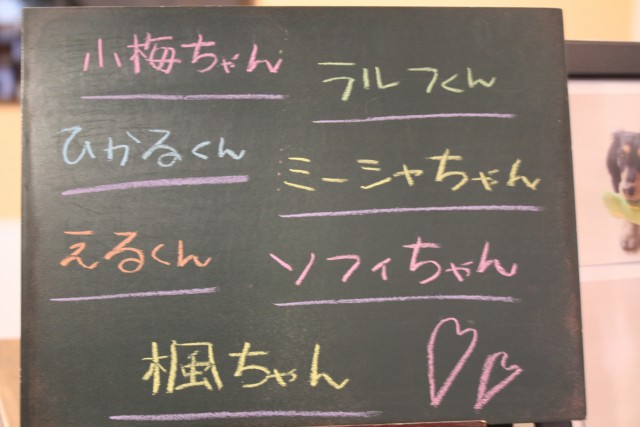 小梅ちゃん
ラルフくん
ひかるくん
ミーシャちゃん
えるくん
ソフィちゃん
楓ちゃん